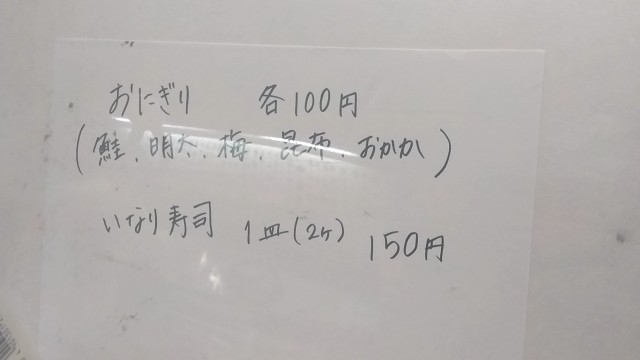 おにぎり 各100円
(鮭、明太、梅、昆布、おかか)
いなり寿司 1皿(2ヶ) 150円